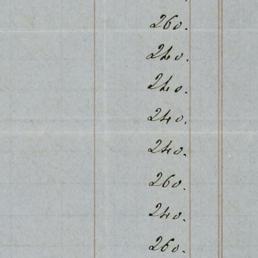 260.
240.
240.
240.
240.
260.
240.
260.